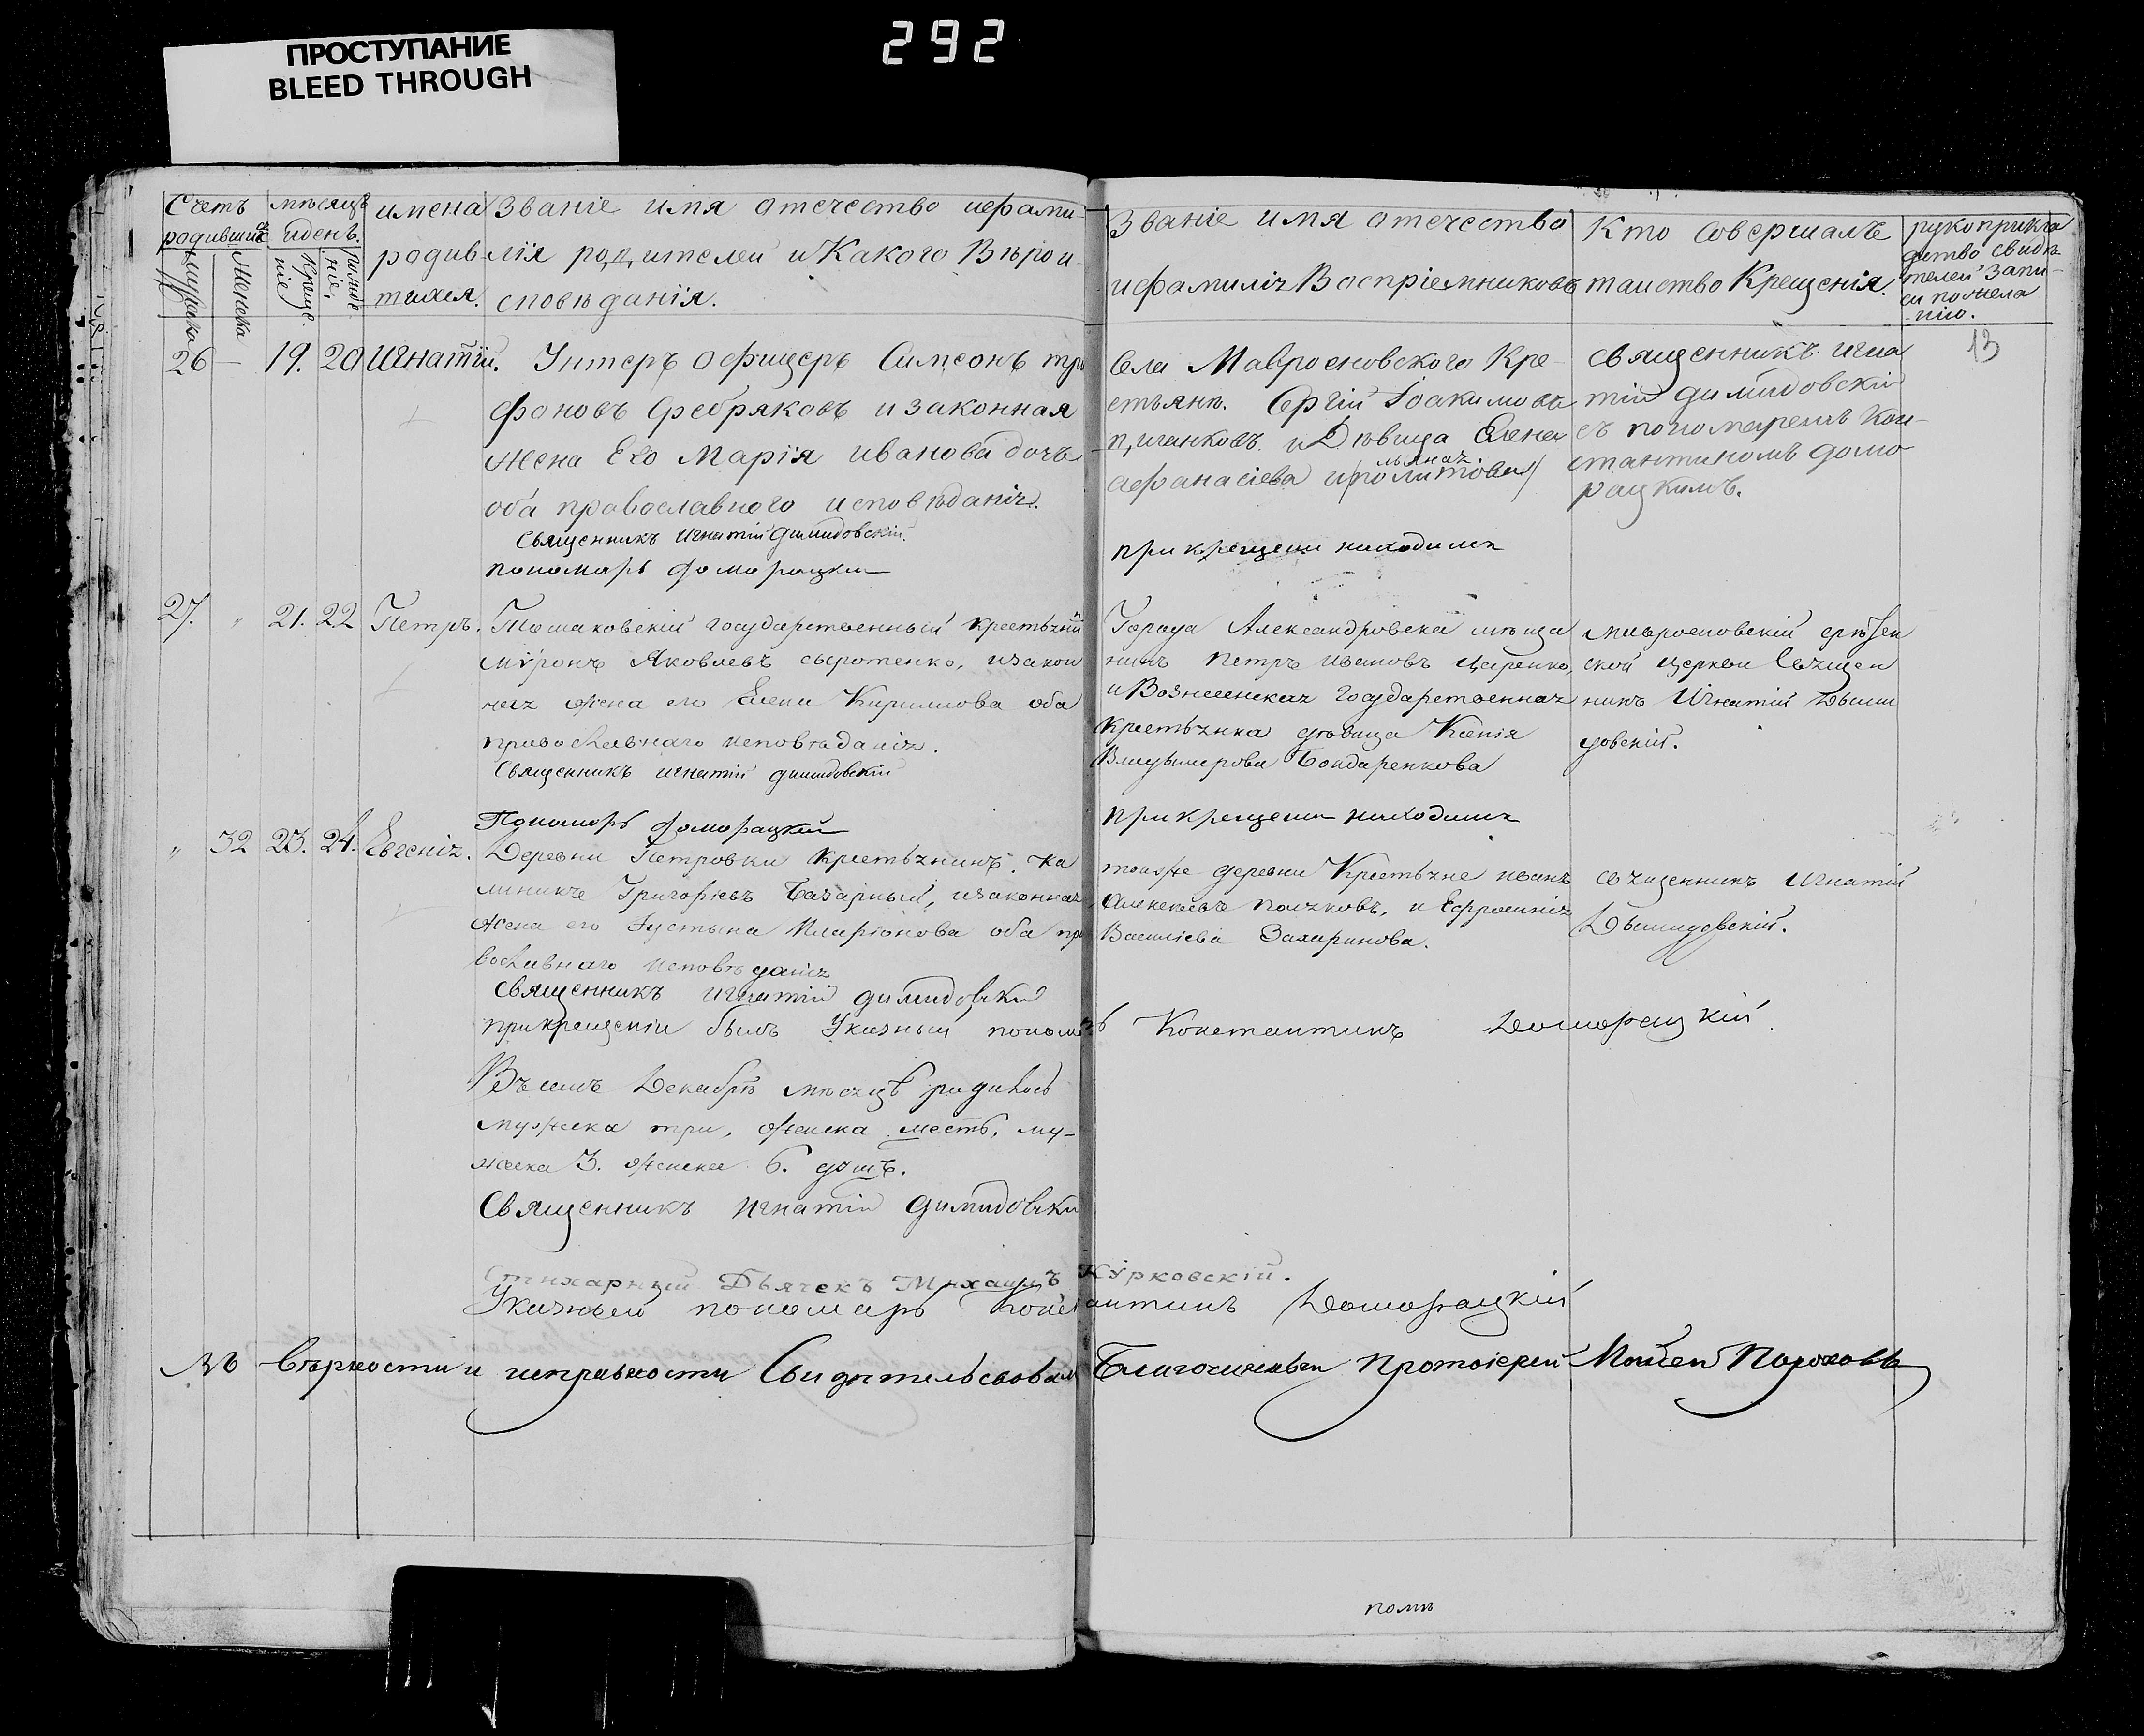 292
ПРОСТУПАНИЕ
BLEED THROUGH
Счетъ родившихся
мѣсяцъ и день.
имена родившихся.
Званіе имя отечество и фамилія родителей и Какого Вѣроисповѣданія.
Званіе имя отечество и фамилія Воспріемниковъ
Кто совершалъ таинство Крещенія.
рукоприкладство свидѣтелей записи по желанию.
Мужска
Женска
26 — 19. 20 Игнатій.
Унтеръ офицеръ Симеонъ Три
фоновъ Сребряковъ и законная
жена Его Марія иванова дочь
оба православного исповѣданія.
Священникъ Игнатій Димидовскій.
пономарь Доморацкій
Села Маврооеновского Кре-
стьянъ. Сергій Іоакимовъ
Цыганковъ и Дѣвица Елена
афанасіева
при крещении находился
священникъ игна
тій димидовскій
съ пономаремъ Кон-
стантиномъ домо
рацкимъ.
13
27. " 21. 22 Петръ.
Томаковскій государственный крестьянинъ
Мѵронъ Яковлевъ сыротенко, и закон
ная жена его Елена Кирилова оба
православнаго исповѣданія.
Священникъ игнатій димидовскій
Пономарь Доморацкій
Города Александровска мѣща
нинъ Петръ Ивановъ Царенко,
и Вознесенская государственная
крестьянка дѣвица Ксенія
Владымирова Бондаренкова
при крещении находился
Срѣтен
ской церкви Священ
никъ Игнатій Дыми
довскій.
" 32 23. 24. Евгенія.
Деревни Петровки Крестьянинъ. Ка
линикъ Григорьевъ Базарный, и законная
жена его Іустына Иларіонова оба пра
вославнаго исповѣданія
священникъ игнатій димидовски
при крещеніи былъ Указный пономарь Константинъ Доморацкій.
тойже деревни Крестьяне иванъ
Алексѣевъ Волчковъ, и Ефросинія
Василіева Захаринова.
священникъ Игнатій
Дымидовскій.
Въ семъ Декабрѣ мѣсяцѣ родилось
мужеска три, женска шесть, му-
жеска 3. женска 6. душъ.
Священникъ Игнатій димидовски
Стихарный Дьячекъ Михаилъ Курковскій.
Указный пономарь Константинъ Доморацкій
Въ вѣрности и исправности Свидѣтельсвовалъ Благочинный Протоіерей Моисей Пороховъ